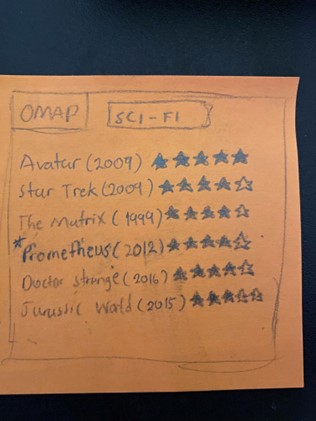 OMAP SCI-FI
Avatar (2009) ★★★★★
Star Trek (2009) ★★★★☆
The Matrix (1999) ★★★★☆
*Prometheus (2012) ★★★★☆
Doctor Strange (2016) ★★★★☆
Jurassic World (2015) ★★★☆☆